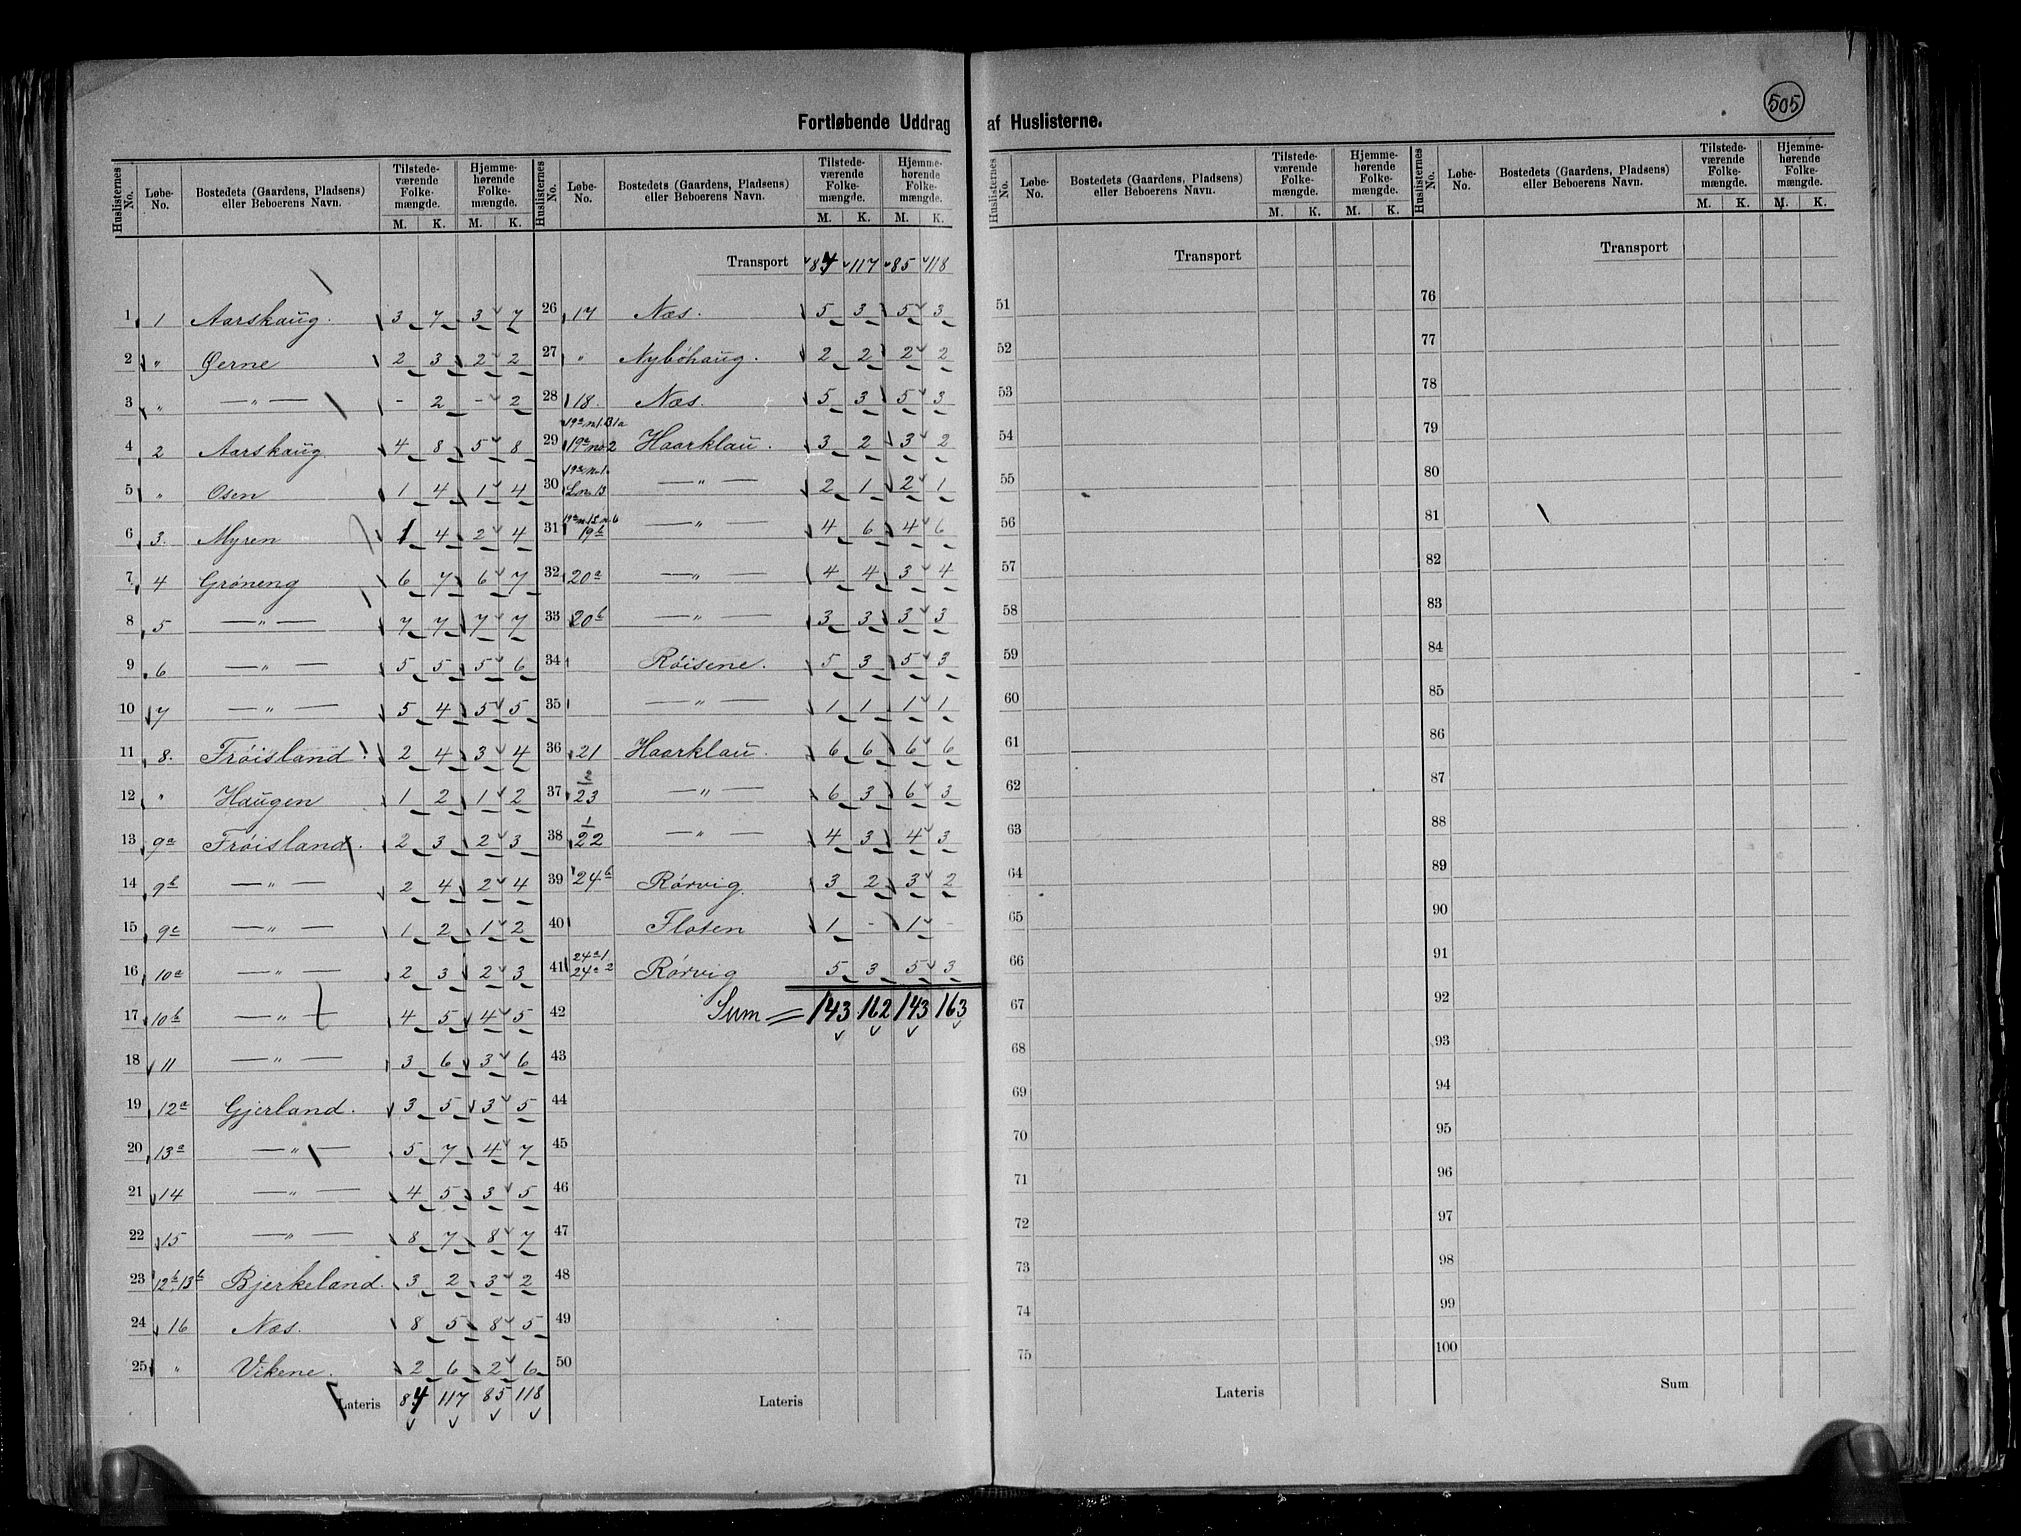 505
Fortløbende Uddrag af Huslisterne.
Huslisternes No. | Løbe-No. | Bostedets (Gaardens, Pladsens) eller Beboerens Navn. | Tilstedeværende Folkemængde. M. K. | Hjemmehørende Folkemængde. M. K.
1 1 Aarskaug. 3 7 3 7
2 " Øerne 2 3 2 2
3 " —"— - 2 - 2
4 2 Aarskaug 4 8 5 8
5 " Osen 1 4 1 4
6 3. Myren 1 4 2 4
7 4 Grøneng 6 7 6 7
8 5 —"— 7 7 7 7
9 6 —"— 5 5 5 6
10 7 —"— 5 4 5 5
11 8. Frøisland 2 4 3 4
12 " Haugen 1 2 1 2
13 9a Frøisland. 2 3 2 3
14 9b —"— 2 4 2 4
15 9c —"— 1 2 1 2
16 10a —"— 2 3 2 3
17 10b —"— 4 5 4 5
18 11 —"— 3 6 3 6
19 12a Gjerland. 3 5 3 5
20 13a —"— 5 7 4 7
21 14 —"— 4 5 3 5
22 15 —"— 8 7 8 7
23 12b, 13b Bjerkeland. 3 2 3 2
24 16 Næs. 8 5 8 5
25 " Vikene. 2 6 2 6
Lateris 84 117 85 118
Huslisternes No. | Løbe-No. | Bostedets (Gaardens, Pladsens) eller Beboerens Navn. | Tilstedeværende Folkemængde. M. K. | Hjemmehørende Folkemængde. M. K.
Transport 84 117 85 118
26 17 Næs. 5 3 5 3
27 " Nybøhaug. 2 2 2 2
28 18. Næs. 5 3 5 3
29 19a no 2 Haarklau. 3 2 3 2
30 Ln. 13 —"— 2 1 2 1
31 19b —"— 4 6 4 6
32 20a —"— 4 4 3 4
33 20b —"— 3 3 3 3
34 Røisene. 5 3 5 3
35 —"— 1 1 1 1
36 21 Haarklau. 6 6 6 6
37 2 23 —"— 6 3 6 3
38 1 22 —"— 4 3 4 3
39 24b Rørvig. 3 2 3 2
40 Floten 1 - 1 -
41 24a 1 24a 2 Rørvig 5 3 5 3
42 Sum = 143 162 143 163
43
44
45
46
47
48
49
50
Lateris
Huslisternes No. | Løbe-No. | Bostedets (Gaardens, Pladsens) eller Beboerens Navn. | Tilstedeværende Folkemængde. M. K. | Hjemmehørende Folkemængde. M. K.
Transport
51
52
53
54
55
56
57
58
59
60
61
62
63
64
65
66
67
68
69
70
71
72
73
74
75
Lateris
Huslisternes No. | Løbe-No. | Bostedets (Gaardens, Pladsens) eller Beboerens Navn. | Tilstedeværende Folkemængde. M. K. | Hjemmehørende Folkemængde. M. K.
Transport
76
77
78
79
80
81
82
83
84
85
86
87
88
89
90
91
92
93
94
95
96
97
98
99
100
Sum